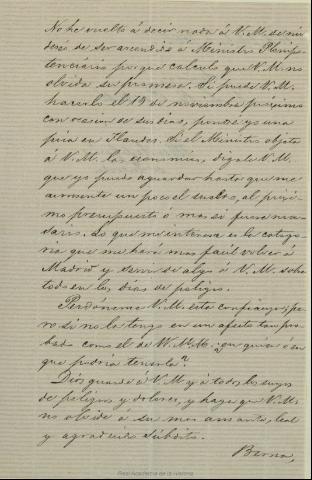 No he vuelto á decir nada á V. M. de mi
deseo de ser ascendido á Ministro Plenipo-
tenciario porque calculo que V. M. no
olvida su promesa. Si puede V. M.
hacerlo el 19 de noviembre próximo
con ocasion de sus dias, pondré yo una
pica en Flandes. Si el Ministro objeta
á V. M. las economias, dígale V. M.
que yo puedo aguardar hasta que me
aumente un poco el sueldo, al próxi-
mo presupuesto ó mas si fuera nece-
sario. Lo que me interesa es la catego-
ria que me hará mas facil volver á
Madrid y servir de algo á V. M. sobre
todo en los dias de peligro.
Perdóneme V. M. esta confianza, pe-
ro si no la tengo en un afecto tan pro-
bado como el de V. M. ¿en quien ó en
que podria tenerla?
Dios guarde á V. M. y á todos los suyos
de peligros y dolores, y haga que V. M.
no olvide á su mas amante, leal
y agradecido súbdito.
Berna,
Real Academia de la Historia